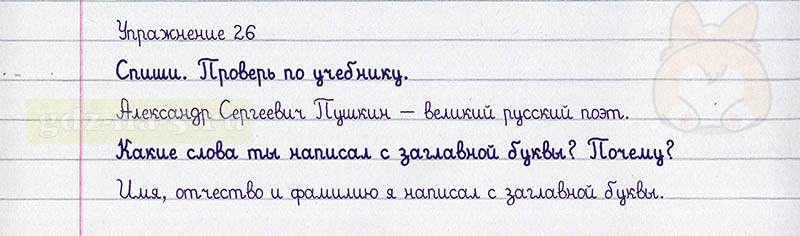 Упражнение 26
Спиши. Проверь по учебнику.
Александр Сергеевич Пушкин — великий русский поэт.
Какие слова ты написал с заглавной буквы? Почему?
Имя, отчество и фамилию я написал с заглавной буквы.